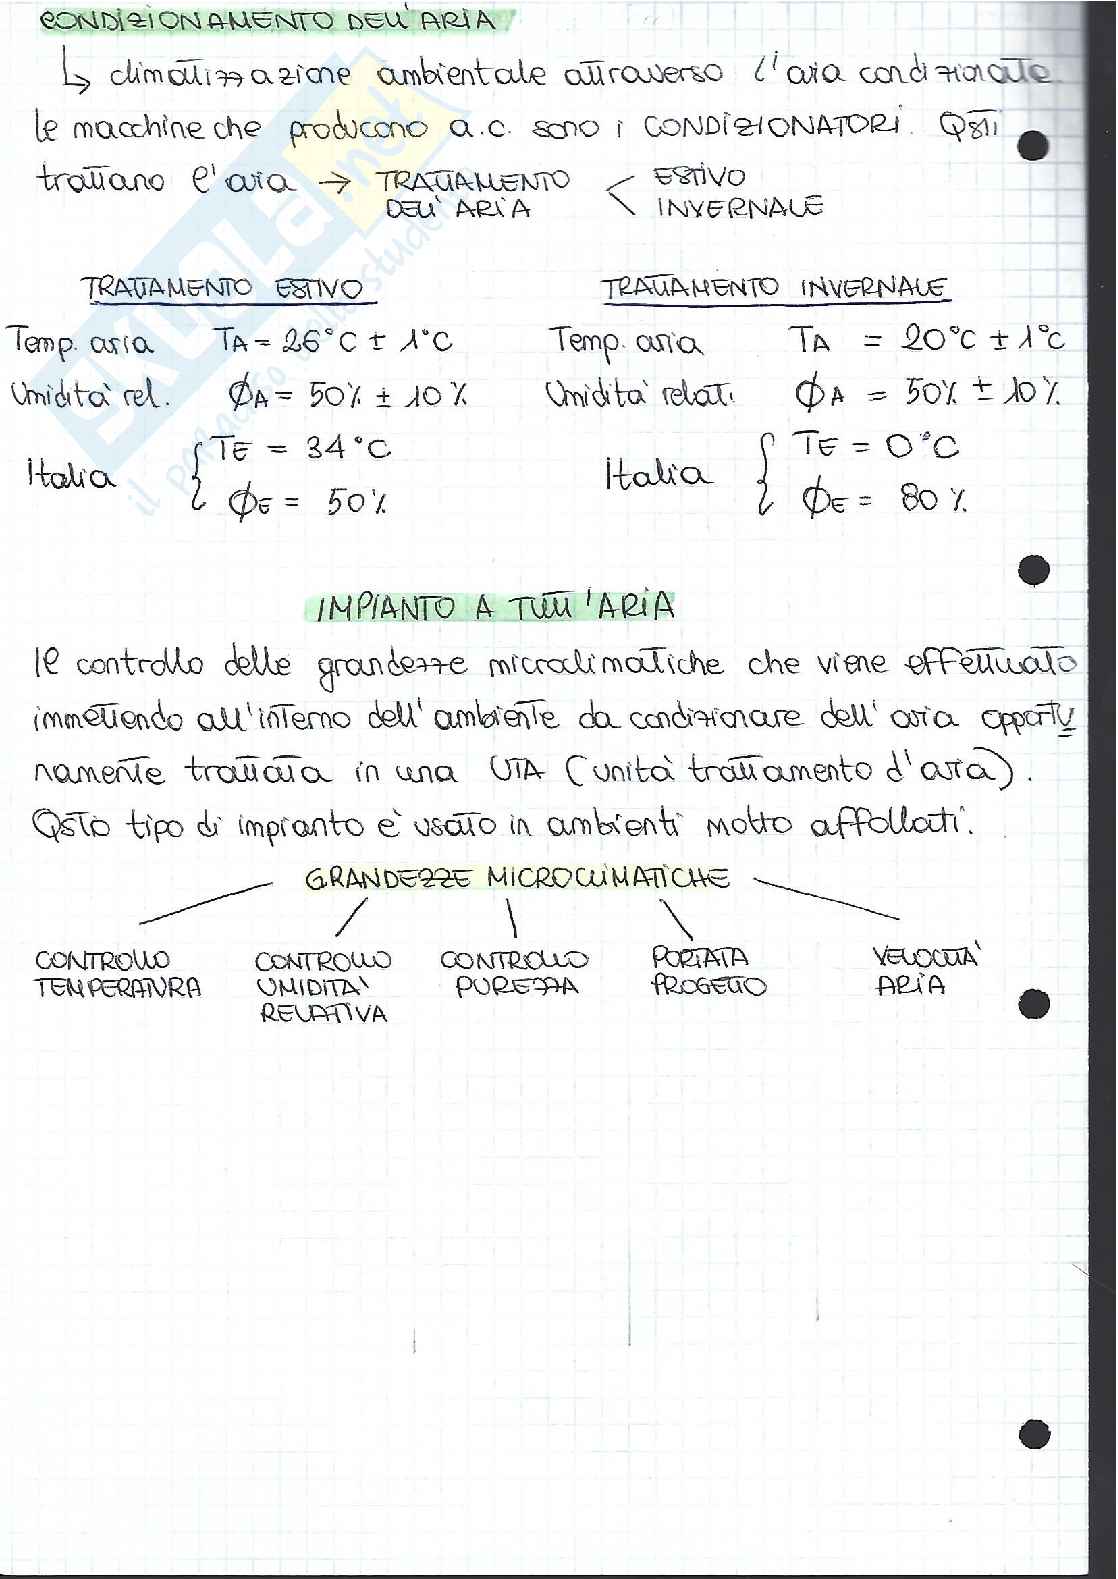 CONDIZIONAMENTO DELL'ARIA
↳ climatizzazione ambientale attraverso l'aria condizionata.
le macchine che producono a.c. sono i CONDIZIONATORI. Qsti
trattano l'aria → TRATTAMENTO DELL'ARIA < ESTIVO
INVERNALE
TRATTAMENTO ESTIVO
Temp. aria TA = 26°C ± 1°C
Umidità rel. ϕA = 50% ± 10%
Italia { TE = 34°C
ϕE = 50%
TRATTAMENTO INVERNALE
Temp. aria TA = 20°C ± 1°C
Umidità relat. ϕA = 50% ± 10%
Italia { TE = 0°C
ϕE = 80%
IMPIANTO A TUTT'ARIA
Il controllo delle grandezze microclimatiche che viene effettuato
immettendo all'interno dell'ambiente da condizionare dell'aria opportu
namente trattata in una UTA (unità trattamento d'aria).
Qsto tipo di impianto è usato in ambienti molto affollati.
GRANDEZZE MICROCLIMATICHE
CONTROLLO
TEMPERATURA
CONTROLLO
UMIDITA'
RELATIVA
CONTROLLO
PUREZZA
PORTATA
PROGETTO
VELOCITA'
ARIA
SKUOLA.net
il paradiso dello studente